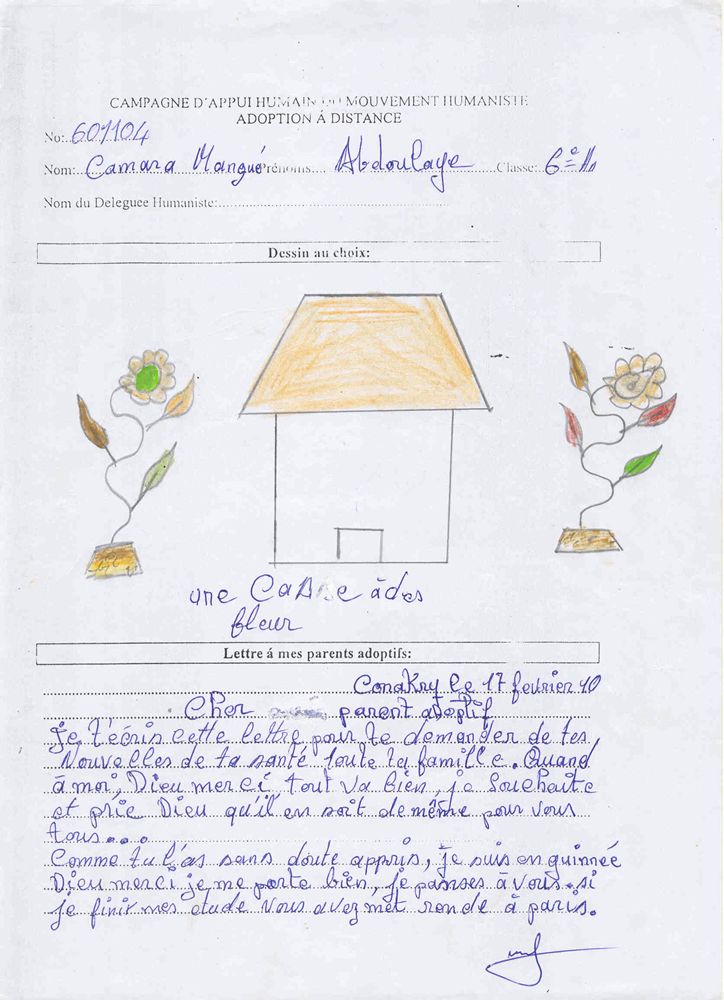 CAMPAGNE D'APPUI HUMAIN DU MOUVEMENT HUMANISTE
ADOPTION Á DISTANCE
No: 601104
Nom: Camara Mangué Prénoms Abdoulaye Classe: 6è
Nom du Deleguee Humaniste:
Dessin au choix:
une à des
fleur
Lettre á mes parents adoptifs:
Conakry le 17 fevrier 10
Cher parent adoptif
Je t'écris cette lettre pour te demander de tes
Nouvelles de ta santé toute la famille. Quand
à moi, Dieu merci tout va bien, je Souhaite
et prie Dieu qu'il en soît de même pour vous
tous...
Comme tu l'as sans doute appris, je suis en guinnée
Dieu merci je me porte bien, je penses à vous. si
je finir mes etude vous avez met ronde à paris.